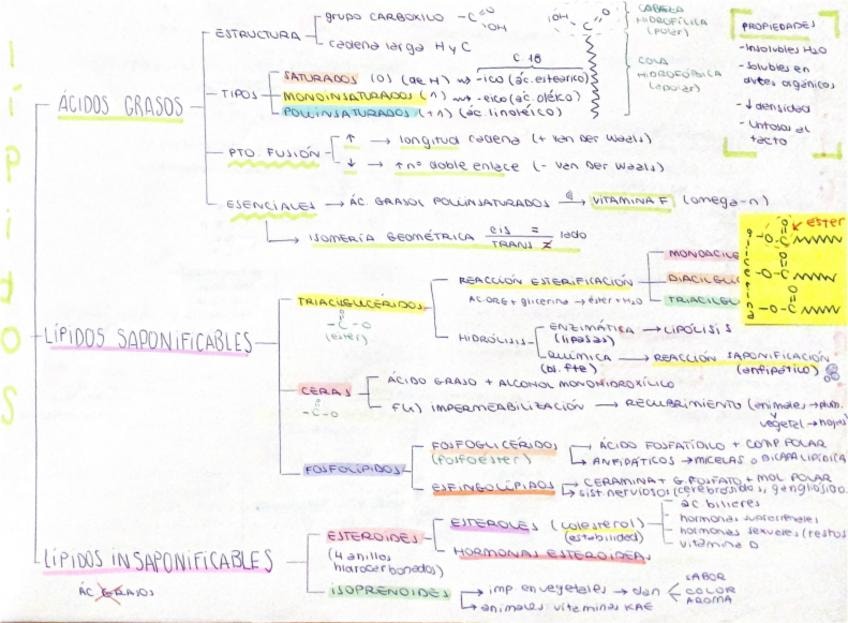 LÍPIDOS
ÁCIDOS GRASOS
ESTRUCTURA
grupo CARBOXILO -C=O OH
cadena larga H y C
OH C O
CABEZA
HIDROFÍLICA
(polar)
COLA
HIDROFÓBICA
(apolar)
PROPIEDADES
- Insolubles H2O
- Solubles en
dvtes orgánicos
- ↓ densidad
- Untosos al
tacto
TIPOS
C 18
SATURADOS (0) (de H) → -ico (ác. estearico)
MONOINSATURADOS (1) → -eico (ác. oléico)
POLIINSATURADOS (+1) (ác. linoleico)
PTO. FUSIÓN
↑ → longitud cadena (+ van Der Waals)
↓ → ↑ nº doble enlace (- Van Der Waals)
ESENCIALES → ÁC. GRASOS POLIINSATURADOS → VITAMINA F (omega-n)
ISOMERÍA GEOMÉTRICA CIS = TRANS ≠ lado
ESTER
glicerina
-O-C
O
-O-C
O
-O-C
O
LÍPIDOS SAPONIFICABLES
TRIACILGLICÉRIDOS
O
-C-O
(ester)
REACCIÓN ESTERIFICACIÓN
AC.ORG + glicerina → éster + H2O
MONOACILG
DIACILGLI
TRIACILGLI
HIDRÓLISIS
ENZIMÁTICA → LIPÓLISIS
(lipasas)
QUÍMICA → REACCIÓN SAPONIFICACIÓN
(bs. fte) (anfipático)
CERAS
O
-C-O
ÁCIDO GRASO + ALCOHOL MONOHIDROXÍLICO
F(x) IMPERMEABILIZACIÓN → RECUBRIMIENTO (animales → plum.
y
vegetal → hojas)
FOSFOLÍPIDOS
FOSFOGLICÉRIDOS
(fosfoéster)
ÁCIDO FOSFATÍDICO + COMP POLAR
ANFIPÁTICOS → MICELAS o BICAPA LIPÍDICA
ESFINGOLÍPIDOS
CERAMINA + G.FOSFATO + MOL POLAR
sist. nervioso: (cerebrósido, gangliosido.
LÍPIDOS INSAPONIFICABLES
ÁC GRASOS
ESTEROIDES
(4 anillos
hidrocarbonados)
ESTEROLES (colesterol)
(estabilidad)
ác biliares
hormonas suprarrenales
hormonas sexuales (testos
vitamina D
HORMONAS ESTEROIDEAS
ISOPRENOIDES
imp en vegetales → dan
SABOR
COLOR
AROMA
animales: vitaminas KAE